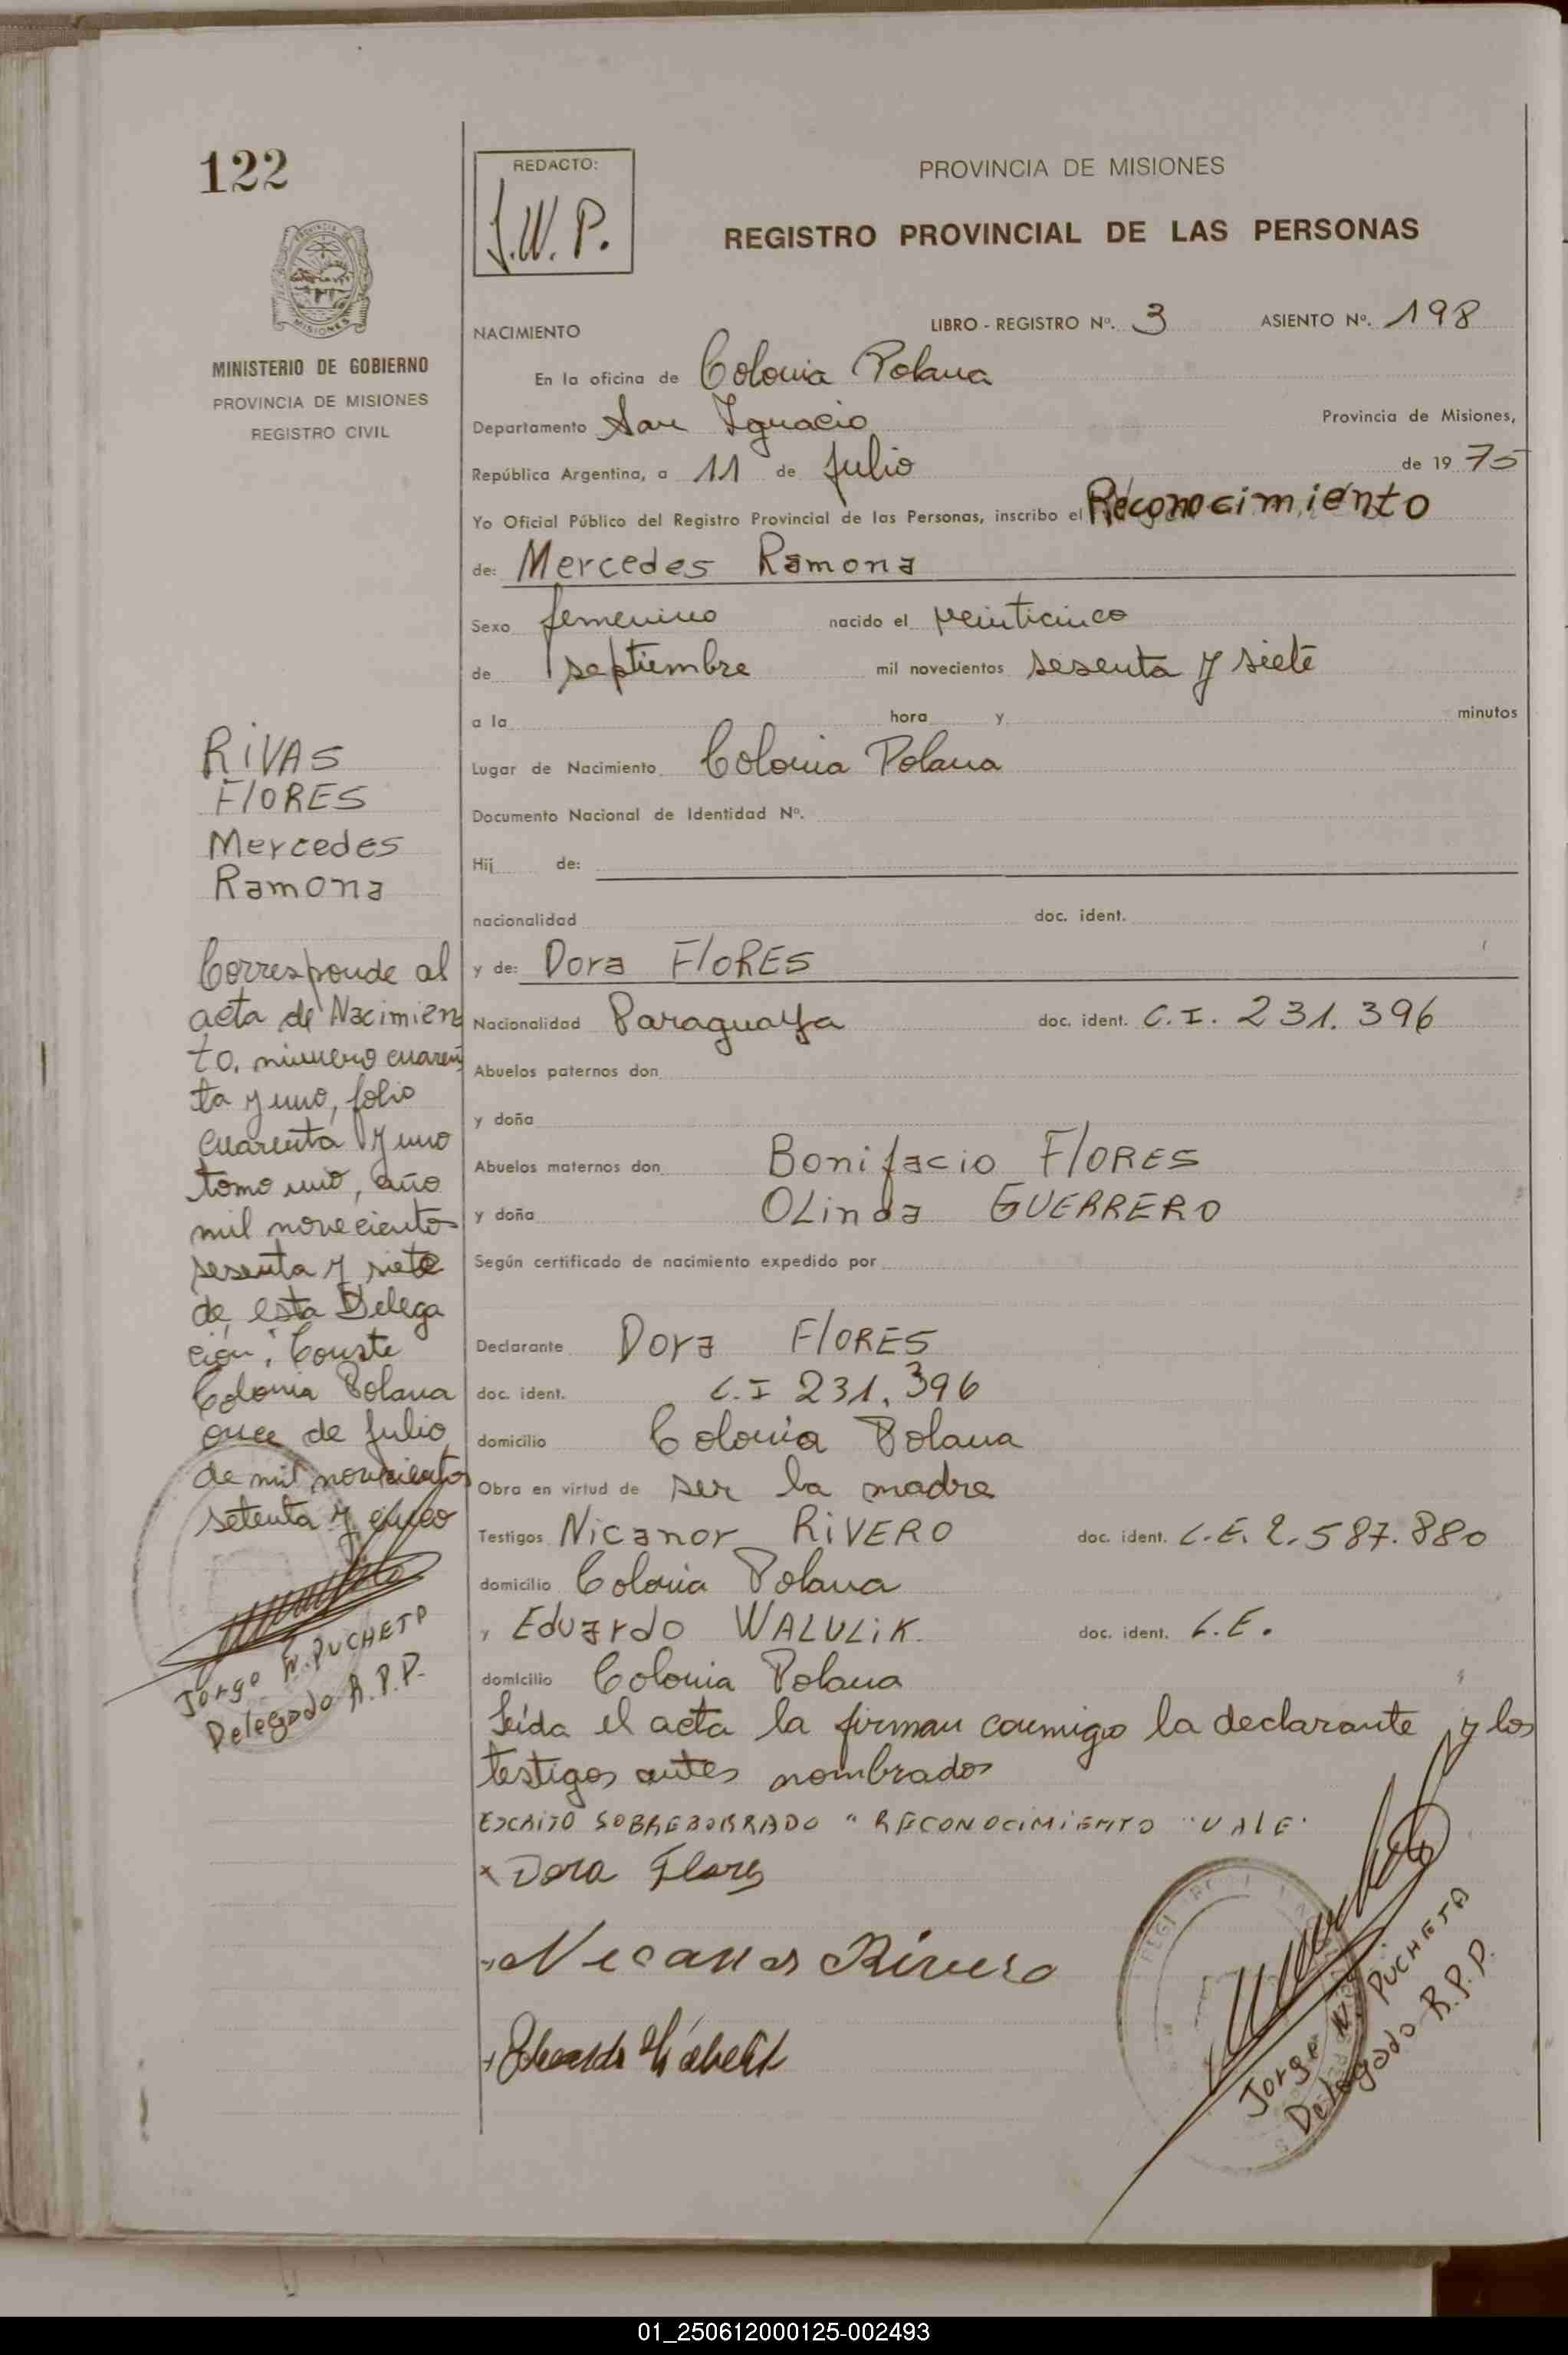 122
PROVINCIA DE MISIONES
MINISTERIO DE GOBIERNO
PROVINCIA DE MISIONES
REGISTRO CIVIL
RIVAS
FLORES
Mercedes
Ramona
Corresponde al
acta de Nacimien
to, número cuaren
ta y uno, folio
cuarenta y uno
tomo uno, año
mil novecientos
sesenta y siete
de esta Delega
ción; Conste
Colonia Polana
once de Julio
de mil novecientos
setenta y cinco
Jorge W. PUCHETA
Delegado R.P.P.
REDACTO:
J.W.P.
PROVINCIA DE MISIONES
REGISTRO PROVINCIAL DE LAS PERSONAS
NACIMIENTO LIBRO - REGISTRO Nº. 3 ASIENTO Nº. 198
En la oficina de Colonia Polana
Departamento San Ignacio Provincia de Misiones,
República Argentina, a 11 de Julio de 19 75
Yo Oficial Público del Registro Provincial de las Personas, inscribo el Reconocimiento
de: Mercedes Ramona
Sexo femenino nacido el veinticinco
de septiembre mil novecientos sesenta y siete
a la hora y minutos
Lugar de Nacimiento Colonia Polana
Documento Nacional de Identidad Nº.
Hij de:
nacionalidad doc. ident.
y de: Dora FLORES
Nacionalidad Paraguaya doc. ident. C.I. 231.396
Abuelos paternos don
y doña
Abuelos maternos don Bonifacio FLORES
y doña OLinda GUERRERO
Según certificado de nacimiento expedido por
Declarante Dora FLORES
doc. ident. C.I 231.396
domicilio Colonia Polana
Obra en virtud de ser la madre
Testigos Nicanor RIVERO doc. ident. L.E. 2.587.880
domicilio Colonia Polana
y Eduardo WALULIK. doc. ident. L.E.
domicilio Colonia Polana
Leída el acta la firman conmigo la declarante y los
testigos antes nombrados
ESCRITO SOBREBORRADO "RECONOCIMIENTO "VALE"
x Dora Flores
Nicanor Rivero
Eduardo
Jorge W. PUCHETA
Delegado R.P.P.
01_250612000125-002493